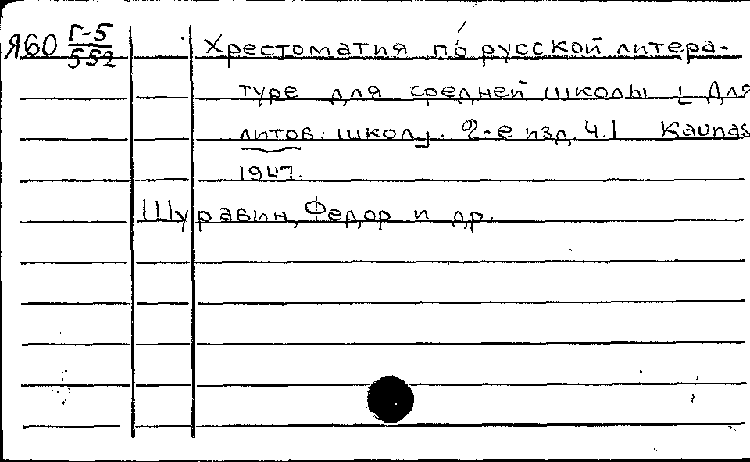 Я60 Г-5/552 Хрестоматия по русской литера-
туре для средней школы [Для
литов. школ]. 2-е изд. Ч.1 Kaunas
1947.
Шуравин, Федор и др.